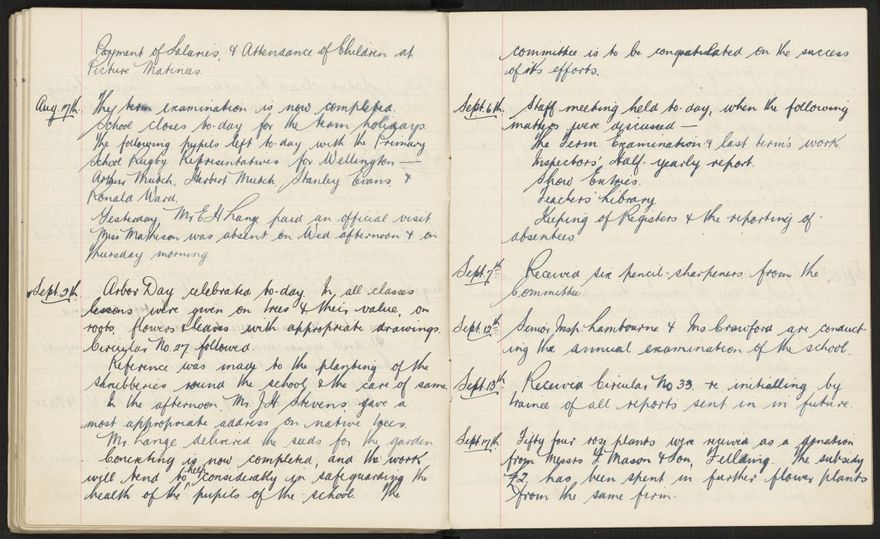 Payment of Salaries, & Attendance of Children at
Picture Matinees.
Aug. 17th. The term examination is now completed.
School closes to-day for the term holidays.
The following pupils left to-day with the Primary
School Rugby Representatives for Wellington —
Arthur Mutch, Herbert Mutch, Stanley Evans &
Ronald Ward.
Yesterday, Mr E. H. Lange paid an official visit
Miss Matheson was absent on Wed afternoon & on
Thursday morning
Sept. 3th. Arbor Day celebrated to-day. In all classes
lessons were given on trees & their value, on
roots, flowers & leaves with appropriate drawings.
Circular No. 27 followed.
Reference was made to the planting of the
shrubberies round the school & the care of same.
In the afternoon, Mr. J. H. Stevens gave a
most appropriate address on native trees.
Mr. Lange delivered the seeds for the garden.
Concreting is now completed, and the work
will tend to help considerably in safeguarding the
health of the pupils of the school. The
committee is to be congratulated on the success
of its efforts.
Sept. 6th. Staff meeting held to-day, when the following
matters were discussed —
The Term Examination & last term's work
Inspectors' Half-yearly report.
Show Entries.
Teachers' Library
Keeping of Registers & the reporting of
absentees
Sept. 7th. Received six pencil-sharpeners from the
Committee
Sept. 12th. Senior Insp. Lambourne & Mr Crawford are conduct-
ing the annual examination of the school.
Sept. 13th. Received Circular No 33 re initialling by
trainee of all reports sent in in future.
Sept. 17th. Fifty four rose plants were received as a donation
from Messrs F. Mason & Son, Feilding. The subsidy
£2 has been spent in further flower plants
from the same firm.